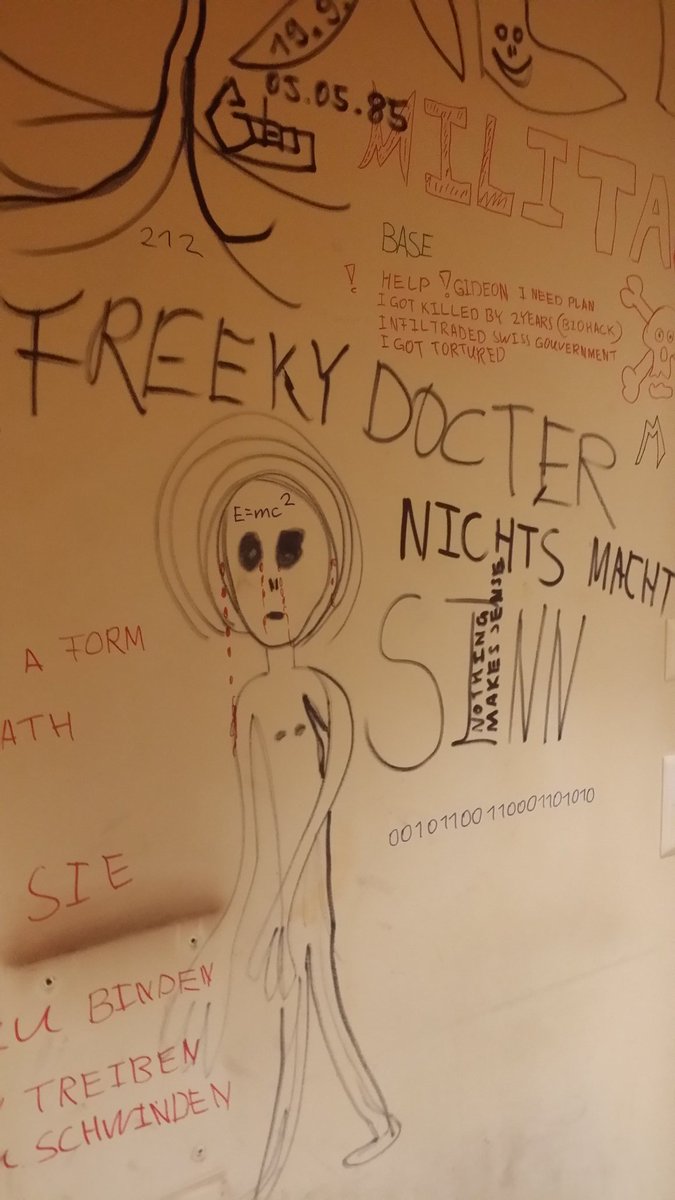 19.9.
05.05.85
MILITA
212
BASE
! HELP ! GIDEON I NEED PLAN
I GOT KILLED BY 2YEARS (BIOHACK)
INFILTRADED SWISS GOUVERNMENT
I GOT TORTURED
FREEKY DOCTER
M
E=mc²
NICHTS MACHT
SINN
NOTHING
MAKES SENSE
A FORM
ATH
00101100110001101010
SIE
ZU BINDEN
TREIBEN
SCHWINDEN